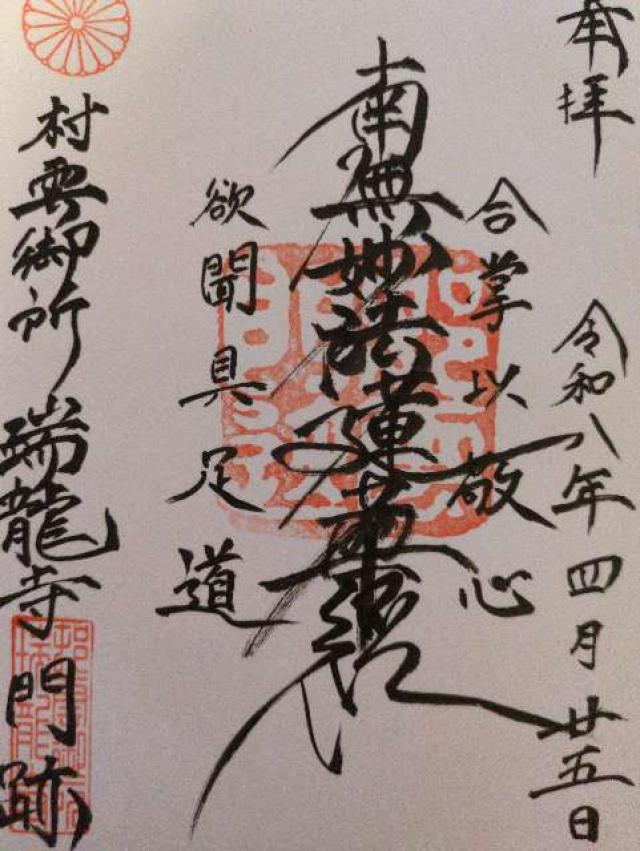 奉拝
令和八年四月廿五日
合掌以敬心
南無妙法蓮華経
欲聞具足道
村雲御所
瑞龍寺門跡